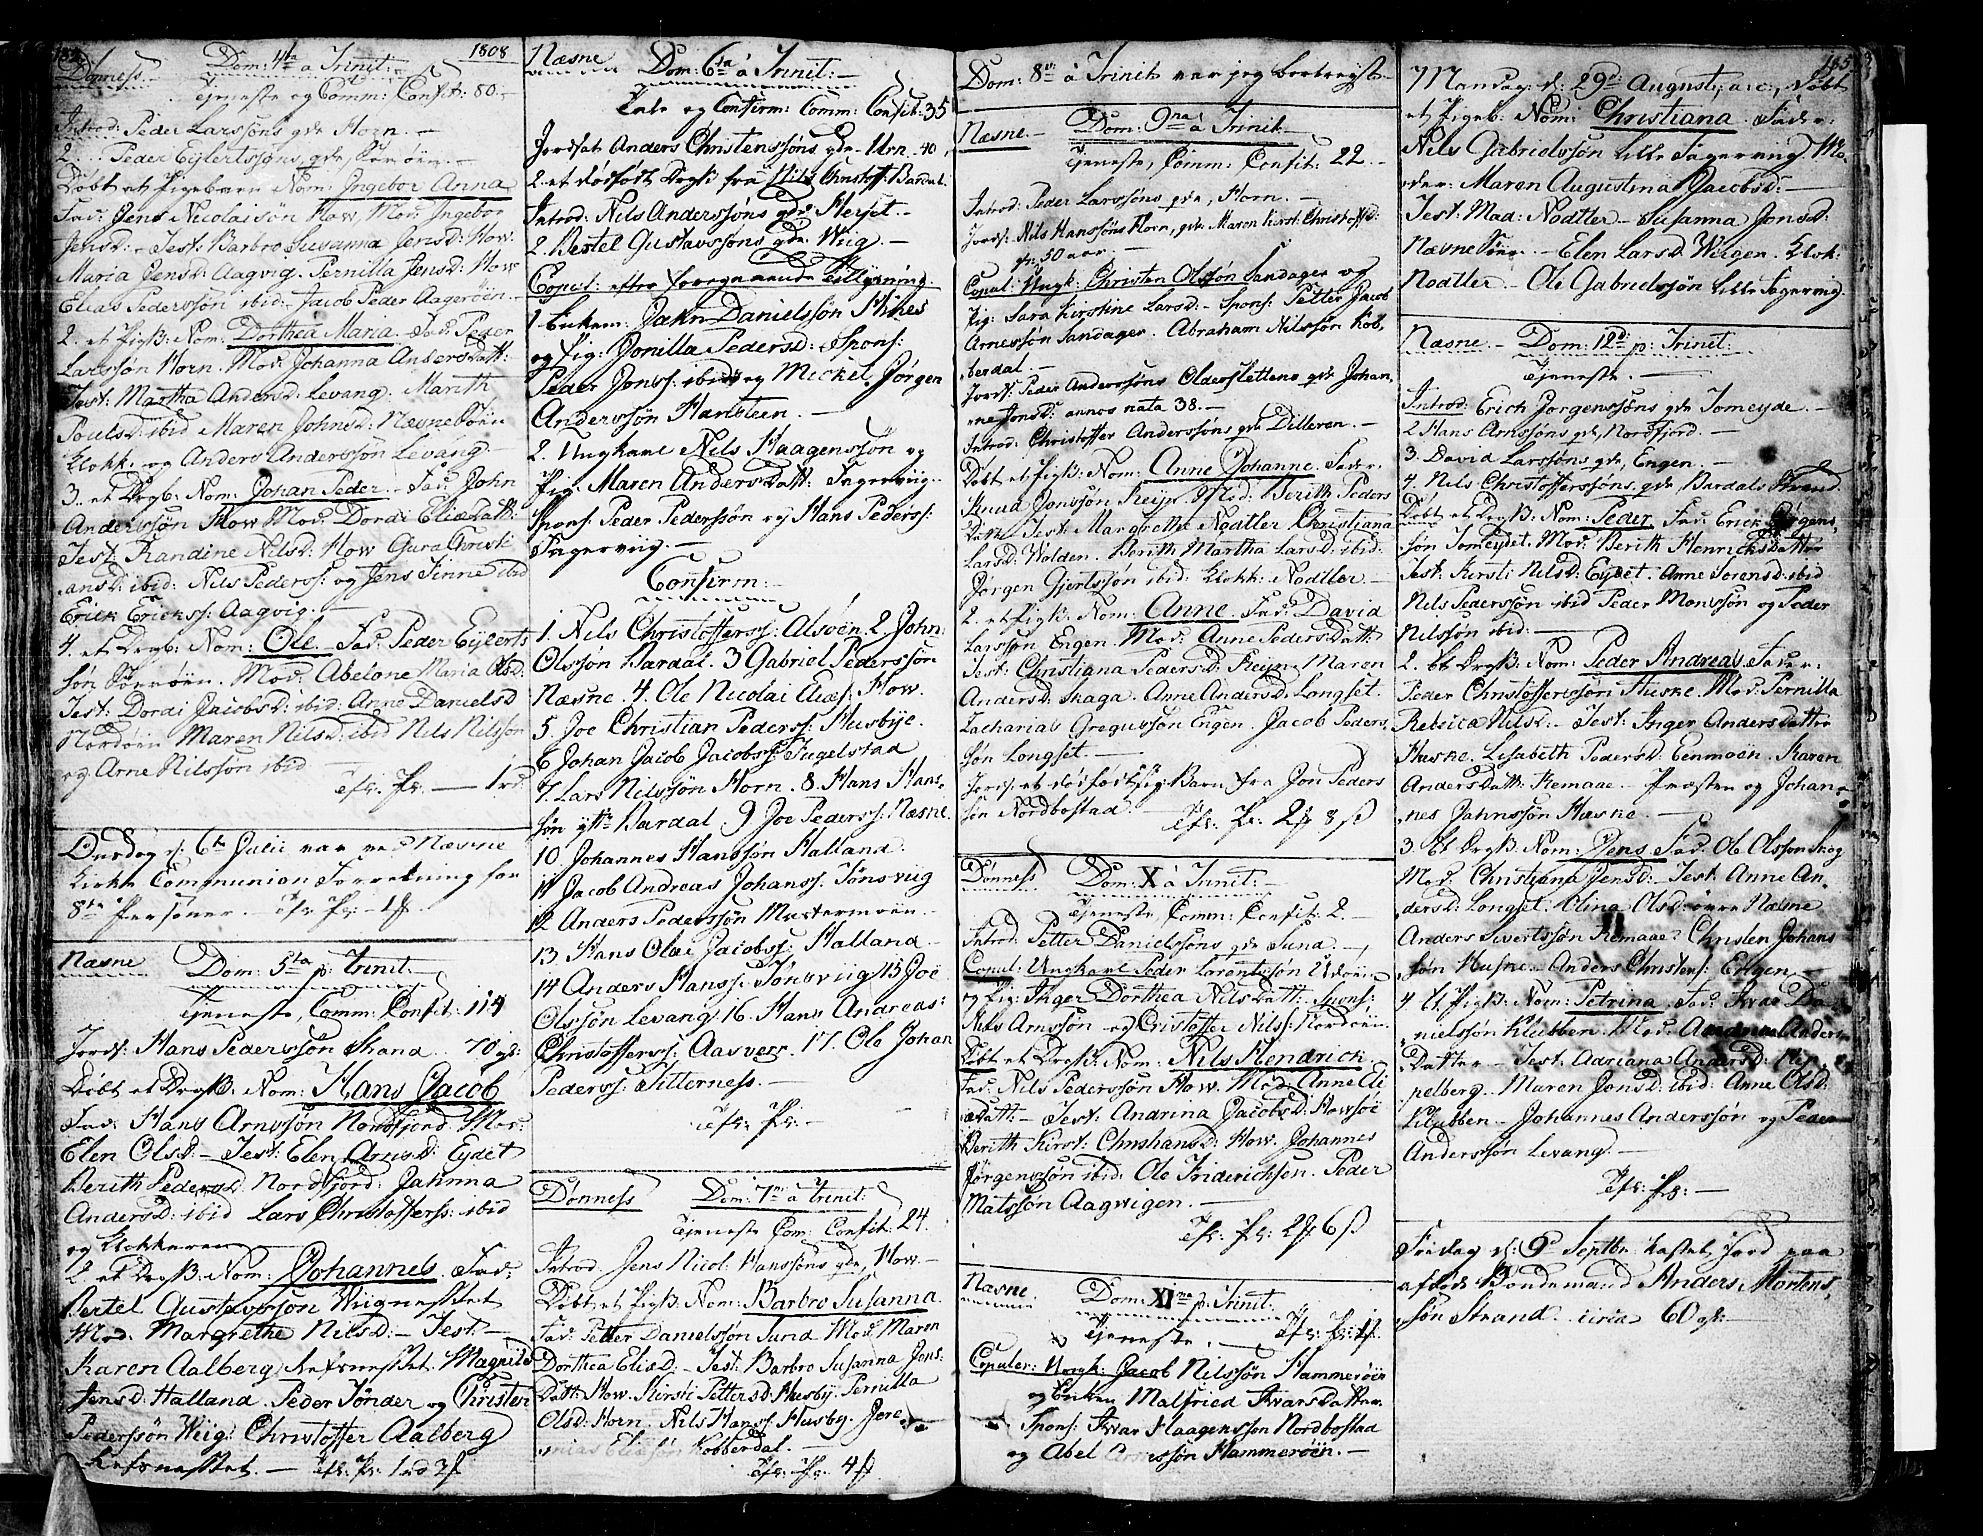 1808
Dönness. Dom: 4ta à Trinit:
Tjeneste og Comm: Confit: 80.
Introd: Peder Larssöns qde Horn.
2. Peder Eylertssöns qde,
Döbt et Pigebarn Nom: Ingebor Anna
Fad: Jens Nicolaisön How, Mod: Ingebor
Jensd: Test: Barbro Susanna Jensd: How.
Maria Jensd: Aagvig. Pernilla Jensd: How
Elias Pederssön ibid: Jacob Peder Aageröen.
2. et Pigb: Nom: Dorthea Maria. Fad: Peder
Larssön Horn. Mod: Johanna Andersdatt:
Test: Martha Andersd: Levang. Marith
Poulsd: ibid Maren Johnsd: Næsne
Klokk: og Anders Anderssön Levang.
3. et Drgb: Nom: Johan Peder. Fad: John
Anderssön How Mod: Dordi Eliædatt:
Test: Randine Nilsd: How Gura Christi
ansd: ibid: Nils Pederss: og Jens Finne ibid
Erick Ericks: Aagvig.
4. et Drgb: Nom: Ole. Fad: Peder Eylert:
sön. Mod: Abelone Maria Olsd:
Test: Dordi Jacobsd: ibid: Anne Danielsd
Nordöen Maren Nilsd: ibid Nils Nilssön
og Arne Nilssön ibid
Tfl: Pr: — 1rd
Onsdag d: 6te Julii var ved Næsne
Kirke Communion Forretning for
8te Personer. Tfl: Pr:
Næsne Dom: 5ta p: Trinit:
Tjeneste, Comm: Confit: 114
Jords: Hans Pederssön Strand. 70
Döbt et Drgb: Nom: Hans Jacob
Fad: Hans Arnssön Nordfjord. Mod:
Elen Olsd: Test: Elen Arnesd: Eydet
Berith Pedersd: Nordfjord: Johanna
Andersd: ibid Lars Christofferss: ibid
og Klokkeren
2. et Drgb: Nom: Johannes. Fad:
Bertel Gustavssön Wiig
Mod: Margrethe Nilsd: Test:
Karen Aalberg. Magnild
Jensd: Halland. Peder Tönder og Christen
Pederssön Wiig: Christoffer Aalberg
Tfl: Pr:
Næsne Dom: 6ta à Trinit:
Tale og Confirm: Comm: Confit: 35
Jordsat Anders Christenssöns qde Urn. 40
2. et dödfödt Drgb fra Nils Christoff: Bardal.
Introd: Nils Anderssöns qde
2. Bertel Gustavssöns qde Wiig.
Copul: efter foregaaende Tillysning
1 Enkem: Jahn Danielssön
og Pig: Jonilla Pedersd: Spons:
Peder Jonss: ibid og Mickel Jörgen
Anderssön Hansteen.
2. Ungkarl Nils Haagenssön og
Pig: Maren Andersdatt: Fagerviig.
Spons: Peder Pederssön og Hans Pederss:
Fagerviig.
Confirm:
1. Nils Christofferss: Alsöen. 2 John
Olssön Bardal. 3 Gabriel Pederssön
Næsne. 4. Ole Nicolai Eliæs: How.
5. Joe Christian Pederss: Husbye.
6 Johan Jacob Jacobss: Fugelstad
7. Lars Nilssön Horn. 8. Hans Hans
sön ytt: Bardal. 9 Joe Pederss: Næsne.
10. Johannes Hanssön Halland.
11 Jacob Andreas Johanss: Tönsviig
12 Anders Pederssön Mastermoen.
13 Hans Olai Jacobss: Halland.
14 Anders Hanss: Tönsviig 15 Joe
Olssön Levang 16. Hans Andreas:
Christofferss: Aasvær. 17. Ole Johan
Pederss: Titterness.
Tfl: Pr:
Dönness Dom: 7ma à Trinit:
Tjeneste Com: Confit: 24.
Introd: Jens Nicol: Hanssöns qde, How
Döbt et Pigb: Nom: Barbro Susanna.
Fad: Petter Danielssön Sund Mod: Maren
Dorthea Elisd: Test: Barbro Susanna Jens:
Datt: How. Kirsti Pettersd: Husby. Pernilla
Olsd: Horn. Nils Hanss: Husby. Jere
mias Kobberdal.
Tfl: Pr: 4
Dom: 8va à Trinit: var jeg bortreyst
Næsne. Dom: 9na à Trinit
Tjeneste, Comm: Confit: 22.
Introd: Peder Larssöns qde, Horn.
Jords: Nils Hanssöns Horn, qde Maren Kirst: Christoffd:
50 aar
Copul: Ungk: Christen Olssön Sandager og
Pig: Sara Kirstine Larsd: Spons: Petter Jacob
Arnessön Sandager. Abraham Nilssön Kob
berdal.
Jords: Peder Anderssöns Olderslettens qde Johan
ne Jonsd: annos nata 38.
Introd: Christoffer Anderssöns qde Dilleren.
Döbt et Pigb: Nom: Anne Johanne. Fader:
Knud Jonssön. Mod: Berith Peders
datt: Test: Margrethe Nodtler Christiana
Larsd: Wolden. Berith Martha Larsd: ibid:
Jörgen Gjertssön ibid: Klokk: Nodtler
2. et Pigb: Nom: Anne. Fad: David
Larssön Engen. Mod: Anne Pedersdatt:
Test: Christiana Pedersd: Maren
Andersd: Skaga. Anne Andersd: Longset.
Zacharias Gregussön Engen. Jacob Peders
sön Longset.
Jords: et dödfödt Pig Barn fra Jon Peders
sön Nordbostad.
Tfl: Pr: 2 8 ß
Dönness Dom: X à Trinit:
Tjeneste Comm: Confit: 2.
Introd: Petter Danielssöns qde Sund.
Copul: Ungkarl Peder Larentssön
og Pig: Inger Dorthea Nilsdatt: Spons:
Nils Arnssön og Cristoffer Nilss: Nordöen.
Döbt et Drgb: Nom: Nils Hendrick
Fad: Nils Pederssön How. Mod: Anne Eli
ædatt: Test: Andrina Jacobsd: Howsöe
Berith Kirst: Christiansd: How. Johannes
Jörgenssön ibid: Ole Friderichsen. Peder
Matssön Aagwigen.
Tfl: Pr: 2 6 ß
Næsne Dom: XIma p: Trinit:
Tjeneste. Tfl: Pr:
Copuler: Ungk: Jacob Nilssön Hammeröen
og Enken Malfried Ivarsdatter
Spons: Ivar Haagenssön Nordbostad
og Abel Hammeröen.
185
Mandag d: 29de Augusti, a: c:, döbt
et Pigeb: Nom: Christiana. Fader:
Nils Gabrielssön lille Fagerviig. Mo
der: Maren Augustina Jacobsd:
Test: Mad: Nodtler Susanna Jonsd:
Næsne. Elen Larsd: Wiigen. Klok:
Nodtler. Ole Gabrielssön lille Fagerviig.
Næsne. Dom: 12d: p: Trinit:
Tjeneste.
Introd: Erich Jörgenssöns qde Tomeyde.
2 Hans Arnssöns qde, Nordfjord
3. David Larssöns qde, Engen.
4. Nils Christofferssöns, qde, Bardal Strand.
Döbt et Drgb: Nom: Peder Fad: Erick Jörgens
sön Tomeydet. Mod: Berith Henricksdatter
Test: Kirsti Nilsd: Eydet. Anne Sörensd: ibid
Nils Pederssön ibid Peder Monssön og Peder
Nilssön ibid:
2. Et Drgb: Nom: Peder Andreas. Fader:
Peder Christofferssön Husne. Mod: Pernilla
Rebecca Nilsd: Test: Inger Andersdatter
Husne. Lisabeth Pedersd: Eenmoen. Karen
Andersdatt: Remaae. Præsten og Johan
nes Jahnssön Husne.
3. Et Drgb: Nom: Jens Fad: Ole Olssön Skog
Mod: Christiana Jensd: Test: Anne An
dersd: Longset. Olina Olsd: övre Næsne
Anders Sivertssön Remaae. Christen Johans
sön Husne. Anders Christens: Engen
4. Et Pigb: Nom: Petrina. Fad: Ivar Da
nielssön Klubben. Mod: Anders
Datter. Test: Adriana Andersd:
pelberg. Maren Jonsd: ibid: Anne Olsd:
Klubben. Johannes Anderssön og Peder
Anderssön Levang.
Tfl: Pr:
Tirsdag d: 6d Septbr: kastet Jord paa
afdöde Bondemand Anders Mortens
sön Strand. circa 60